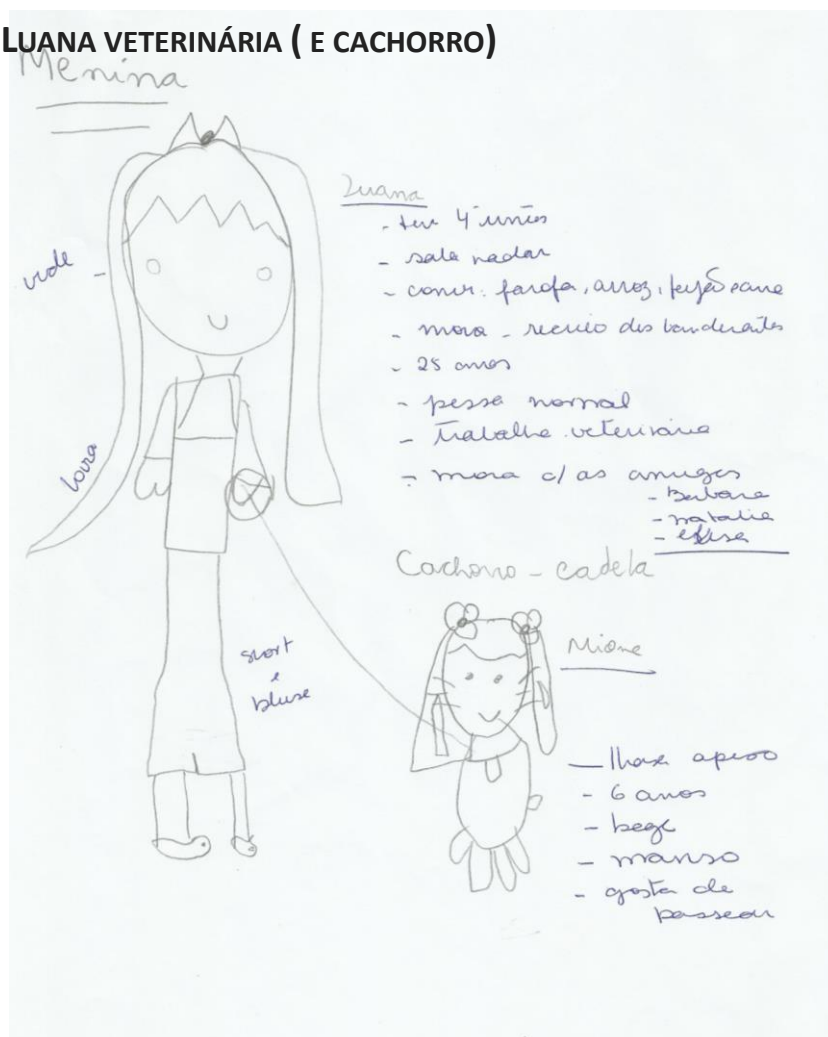 LUANA VETERINÁRIA ( E CACHORRO)
Menina
Luana
- tem 4 irmãos
- sabe nadar
- comer: farofa, arroz, feijão carne
- mora - recreio dos bandeirantes
- 25 anos
- pessoa normal
- Trabalha veterinária
- mora c/ as amigas
- Barbara
- natalia
verde
loira
short
e
bluse
Cachorro - cadela
Mione
- lhasa apsoo
- 6 anos
- bege
- manso
- gosta de
passear